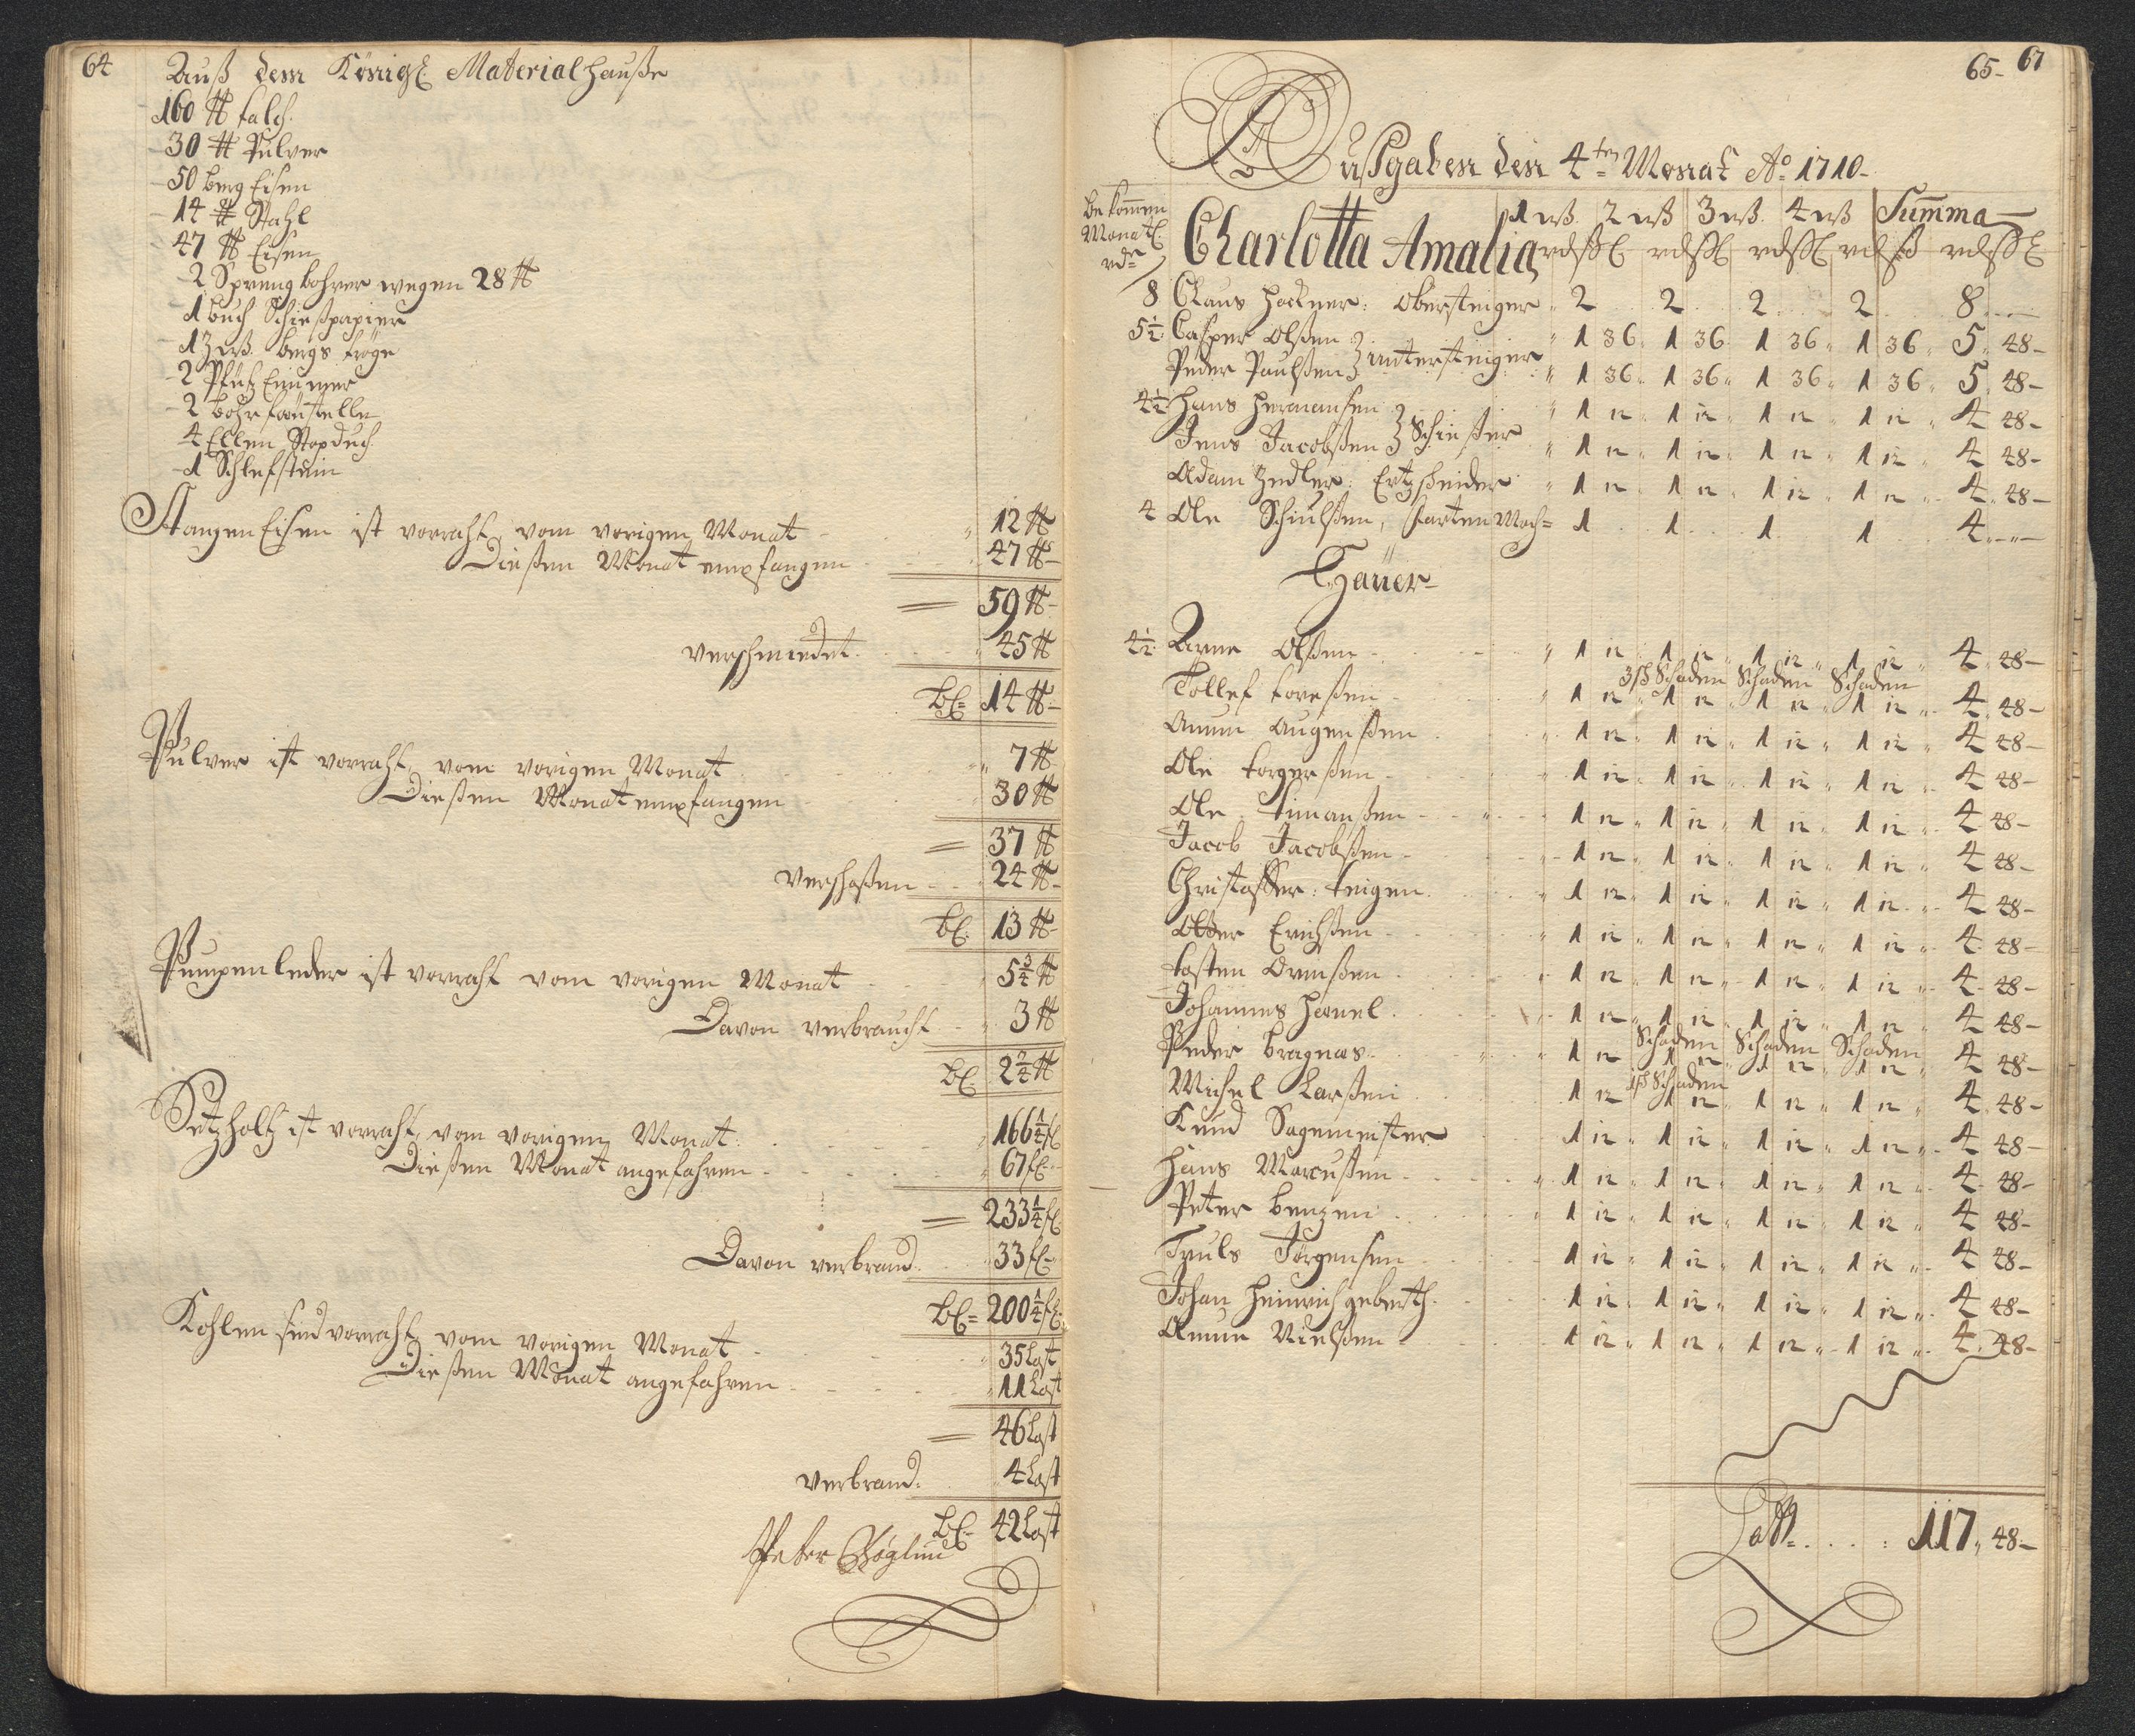 64
Auß dem Königl. Materialhauße
160 ℔ talch.
30 ℔ Pulver
50 berg Eisen
14 ℔ Stahl
47 ℔ Eisen
2 Sprengbohrer wegen 28 ℔
1 buch Schießpapier
1 bergs tröge
2 Pfütz Eimmer
2 bohr feustelle
4 Ellen Stopduch
1 Schlefstein
Stangen Eisen ist vorraht, vom vorigen Monat 12 ℔
Dießen Monat empfangen 47 ℔
= 59 ℔
verschmiedet 45 ℔
bl= 14 ℔
Pulver ist vorraht, vom vorigen Monat 7 ℔
Dießen Monat empfangen 30 ℔
= 37 ℔
verschoßen 24 ℔
bl. 13 ℔
Pumpenleder ist vorraht vom vorigen Monat 5 3/4 ℔
Davon verbraucht 3 ℔
bl. 2 3/4 ℔
Setzholtz ist vorraht, vom vorigen Monat 166 1/4 fl
Dießen Monat angefahren 67 fl
= 233 1/4 fl
Davon verbrand 33 fl
bl= 200 1/4 fl
Kohlen sind vorraht, vom vorigen Monat 35 Last
Dießen Monat angefahren 11 Last
= 46 Last
verbrand 4 Last
bl= 42 Last
Peter
65- 67
Außgaben den 4ten Monat Ao 1710-
bekommen Monatl. rdr
Charlotta Amalia
1 wß 2 wß 3 wß 4 wß Summa
rd ßl rd ßl rd ßl rd ß rd ßl
8 Claus Hackner: Obersteiger 2 2 2 2 8
5 1/2 Casper Olßen 1 36 1 36 1 36 1 36 5 48
untersteiger
Peder Paulßen 1 36 1 36 1 36 1 36 5 48
4 1/2 Hans Hermansen 1 12 1 12 1 12 1 12 4 48
Schießer
Jens Jacobßen 1 12 1 12 1 12 1 12 4 48
Adam Zedler: Ertzscheider 1 12 1 12 1 12 1 12 4 48
4 Ole Schiulßen, Karten Mach= 1 1 1 1 4
Häuer
4 1/2 Arne Olßen 1 12 1 12 1 12 1 12 4 48
3 ß Schaden Schaden Schaden
Tollef toreßen 1 12 1 12 1 12 1 12 4 48
Amun Augenßen 1 12 1 12 1 12 1 12 4 48
Ole torgerßen 1 12 1 12 1 12 1 12 4 48
Ole timanßen 1 12 1 12 1 12 1 12 4 48
Jacob Jacobßen 1 12 1 12 1 12 1 12 4 48
Christoffer: teigen 1 12 1 12 1 12 1 12 4 48
Erichßen 1 12 1 12 1 12 1 12 4 48
tosten Evenßen 1 12 1 12 1 12 1 12 4 48
Johannes Havel 1 12 1 12 1 12 1 12 4 48
Schaden Schaden Schaden
Peder bragnæs 1 12 1 12 1 12 1 12 4 48
1 ß Schaden
Michel Larßen 1 12 1 12 1 12 1 12 4 48
Knud Sagemeister 1 12 1 12 1 12 1 12 4 48
Hans Marcußen 1 12 1 12 1 12 1 12 4 48
Peter benzen 1 12 1 12 1 12 1 12 4 48
Truls Jørgensen 1 12 1 12 1 12 1 12 4 48
Johan Heinrich geberth 1 12 1 12 1 12 1 12 4 48
Amun Nielßen 1 12 1 12 1 12 1 12 4 48
Latt= 117 48